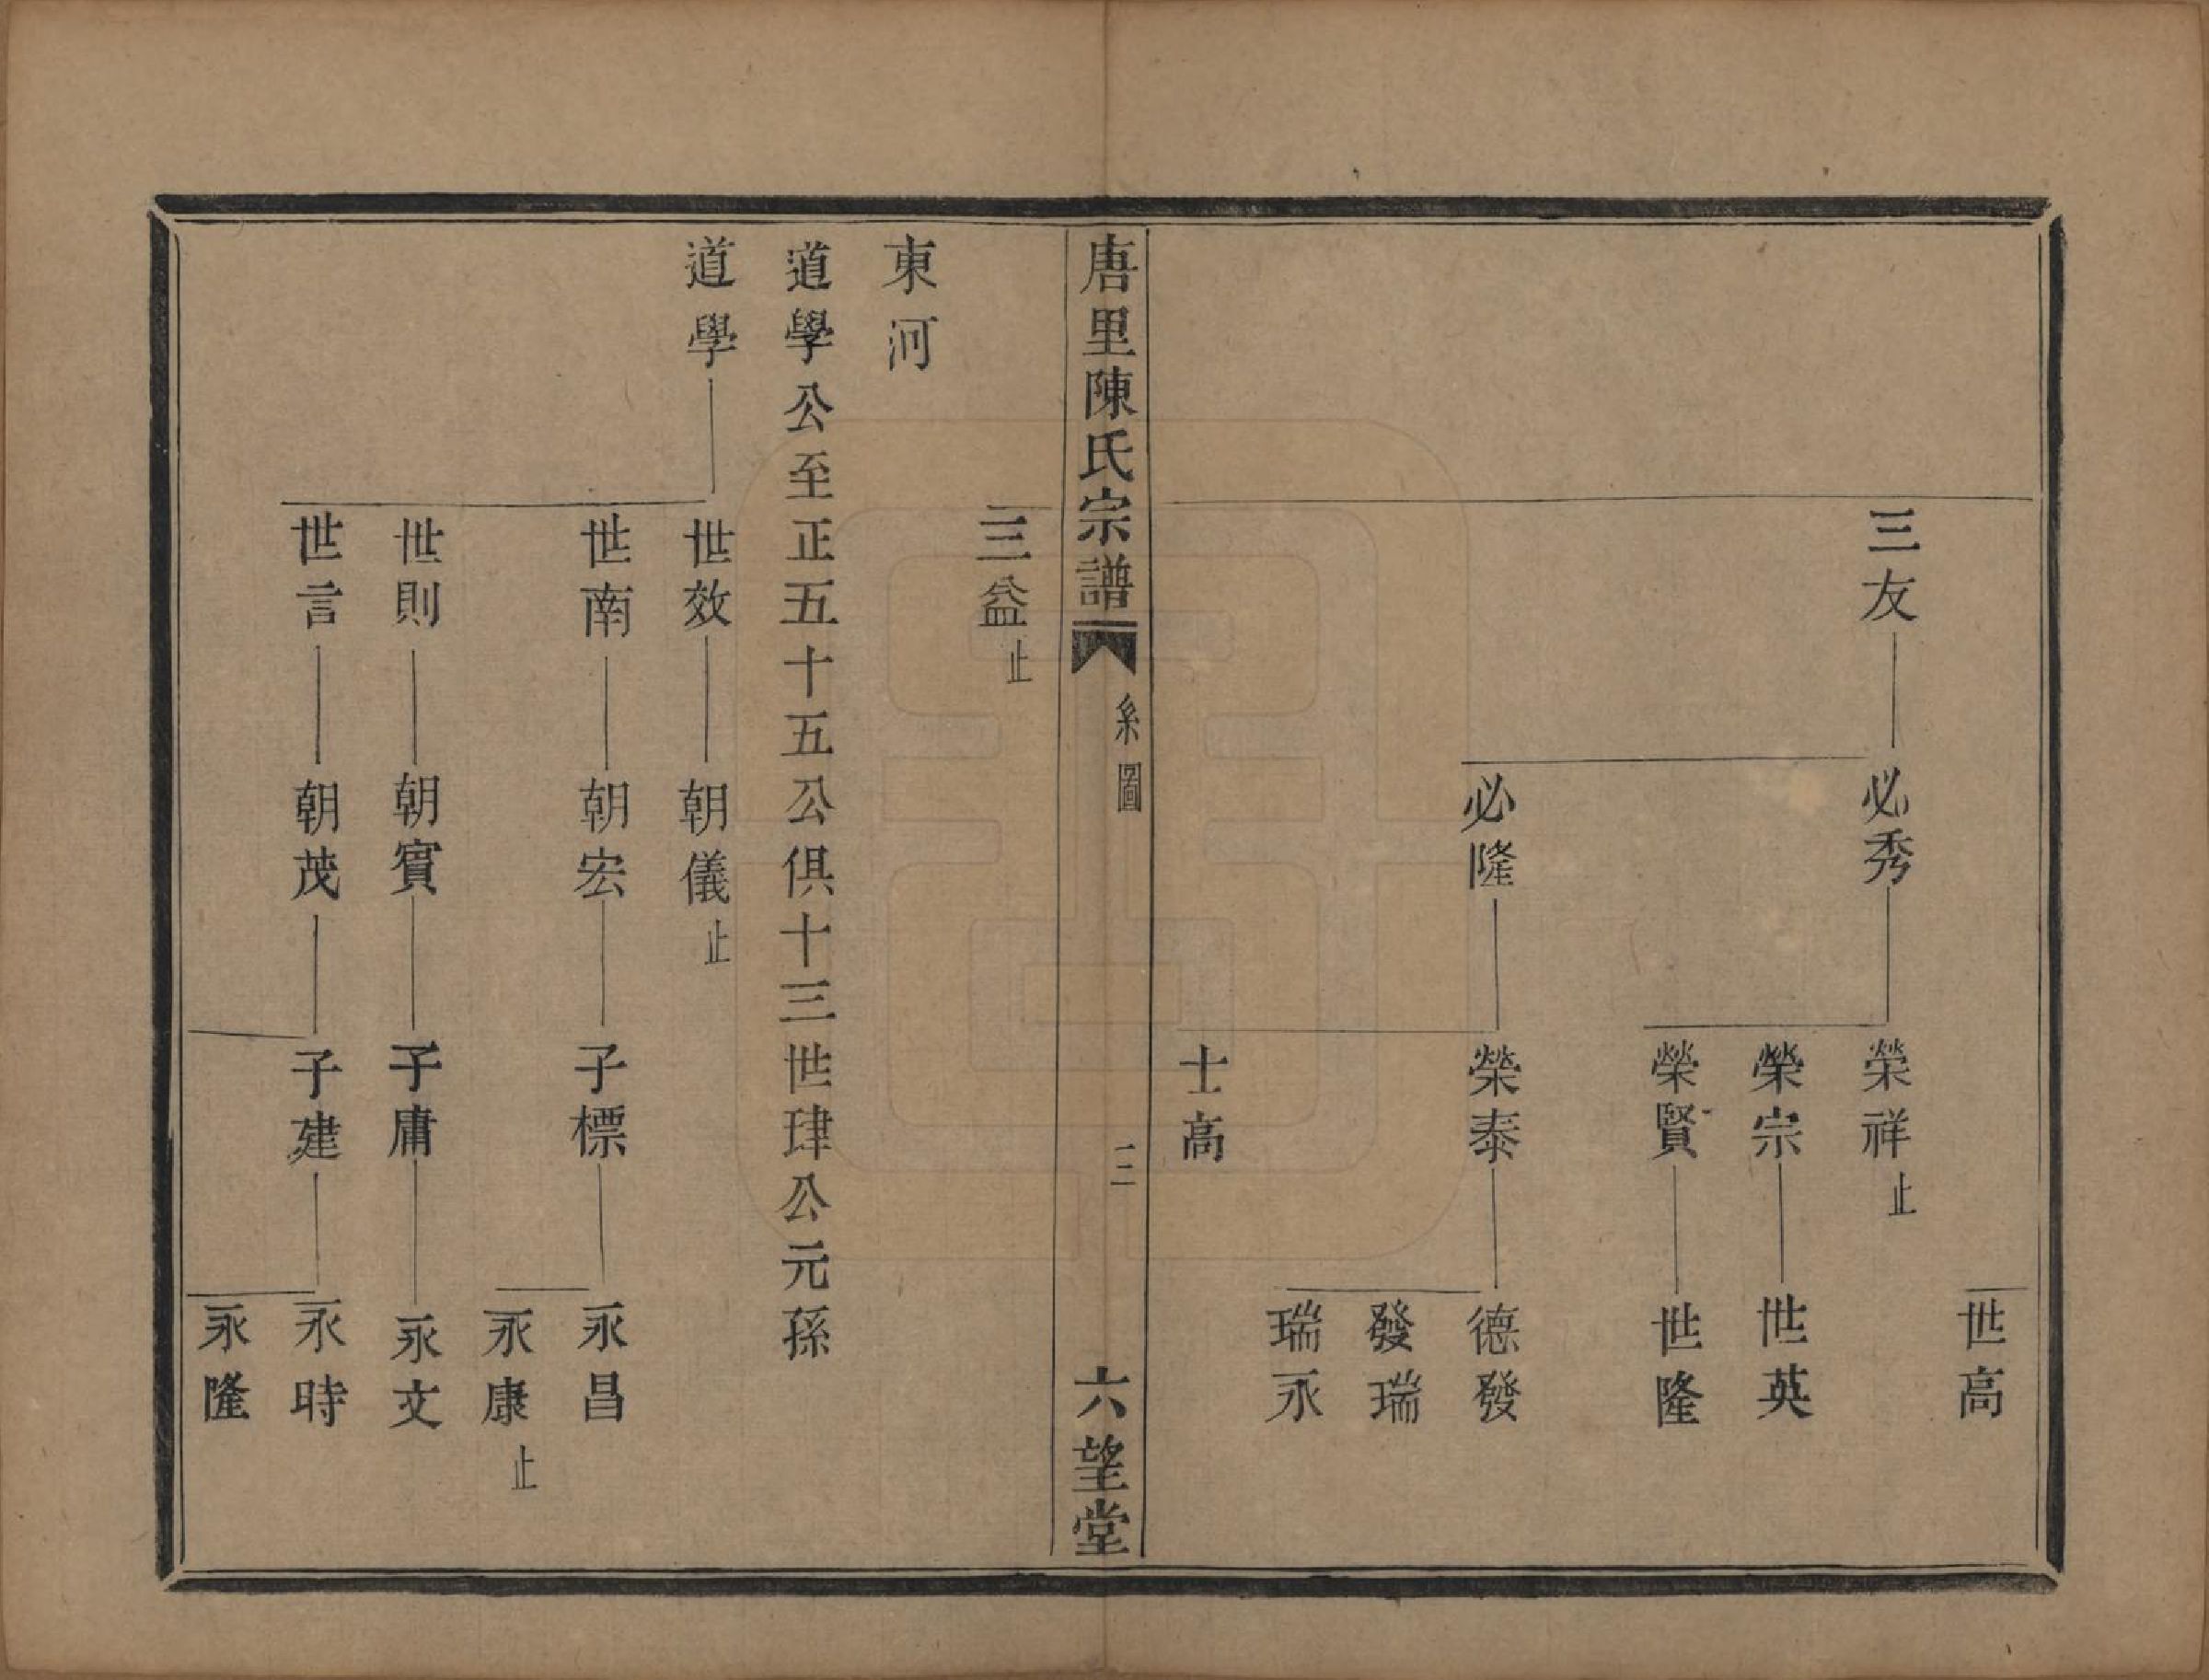 世高
三友
必秀
榮祥止
榮宗
世英
榮賢
世隆
必隆
榮泰
德發
發瑞
瑞永
士高
唐里陳氏宗譜
系圖
二
六望堂
三益止
東河
道學公至正五十五公俱十三世肆公元孫
道學
世效
朝儀止
世南
朝宏
子標
永昌
永康止
世則
朝賓
子庸
永文
世言
朝茂
子建
永時
永隆